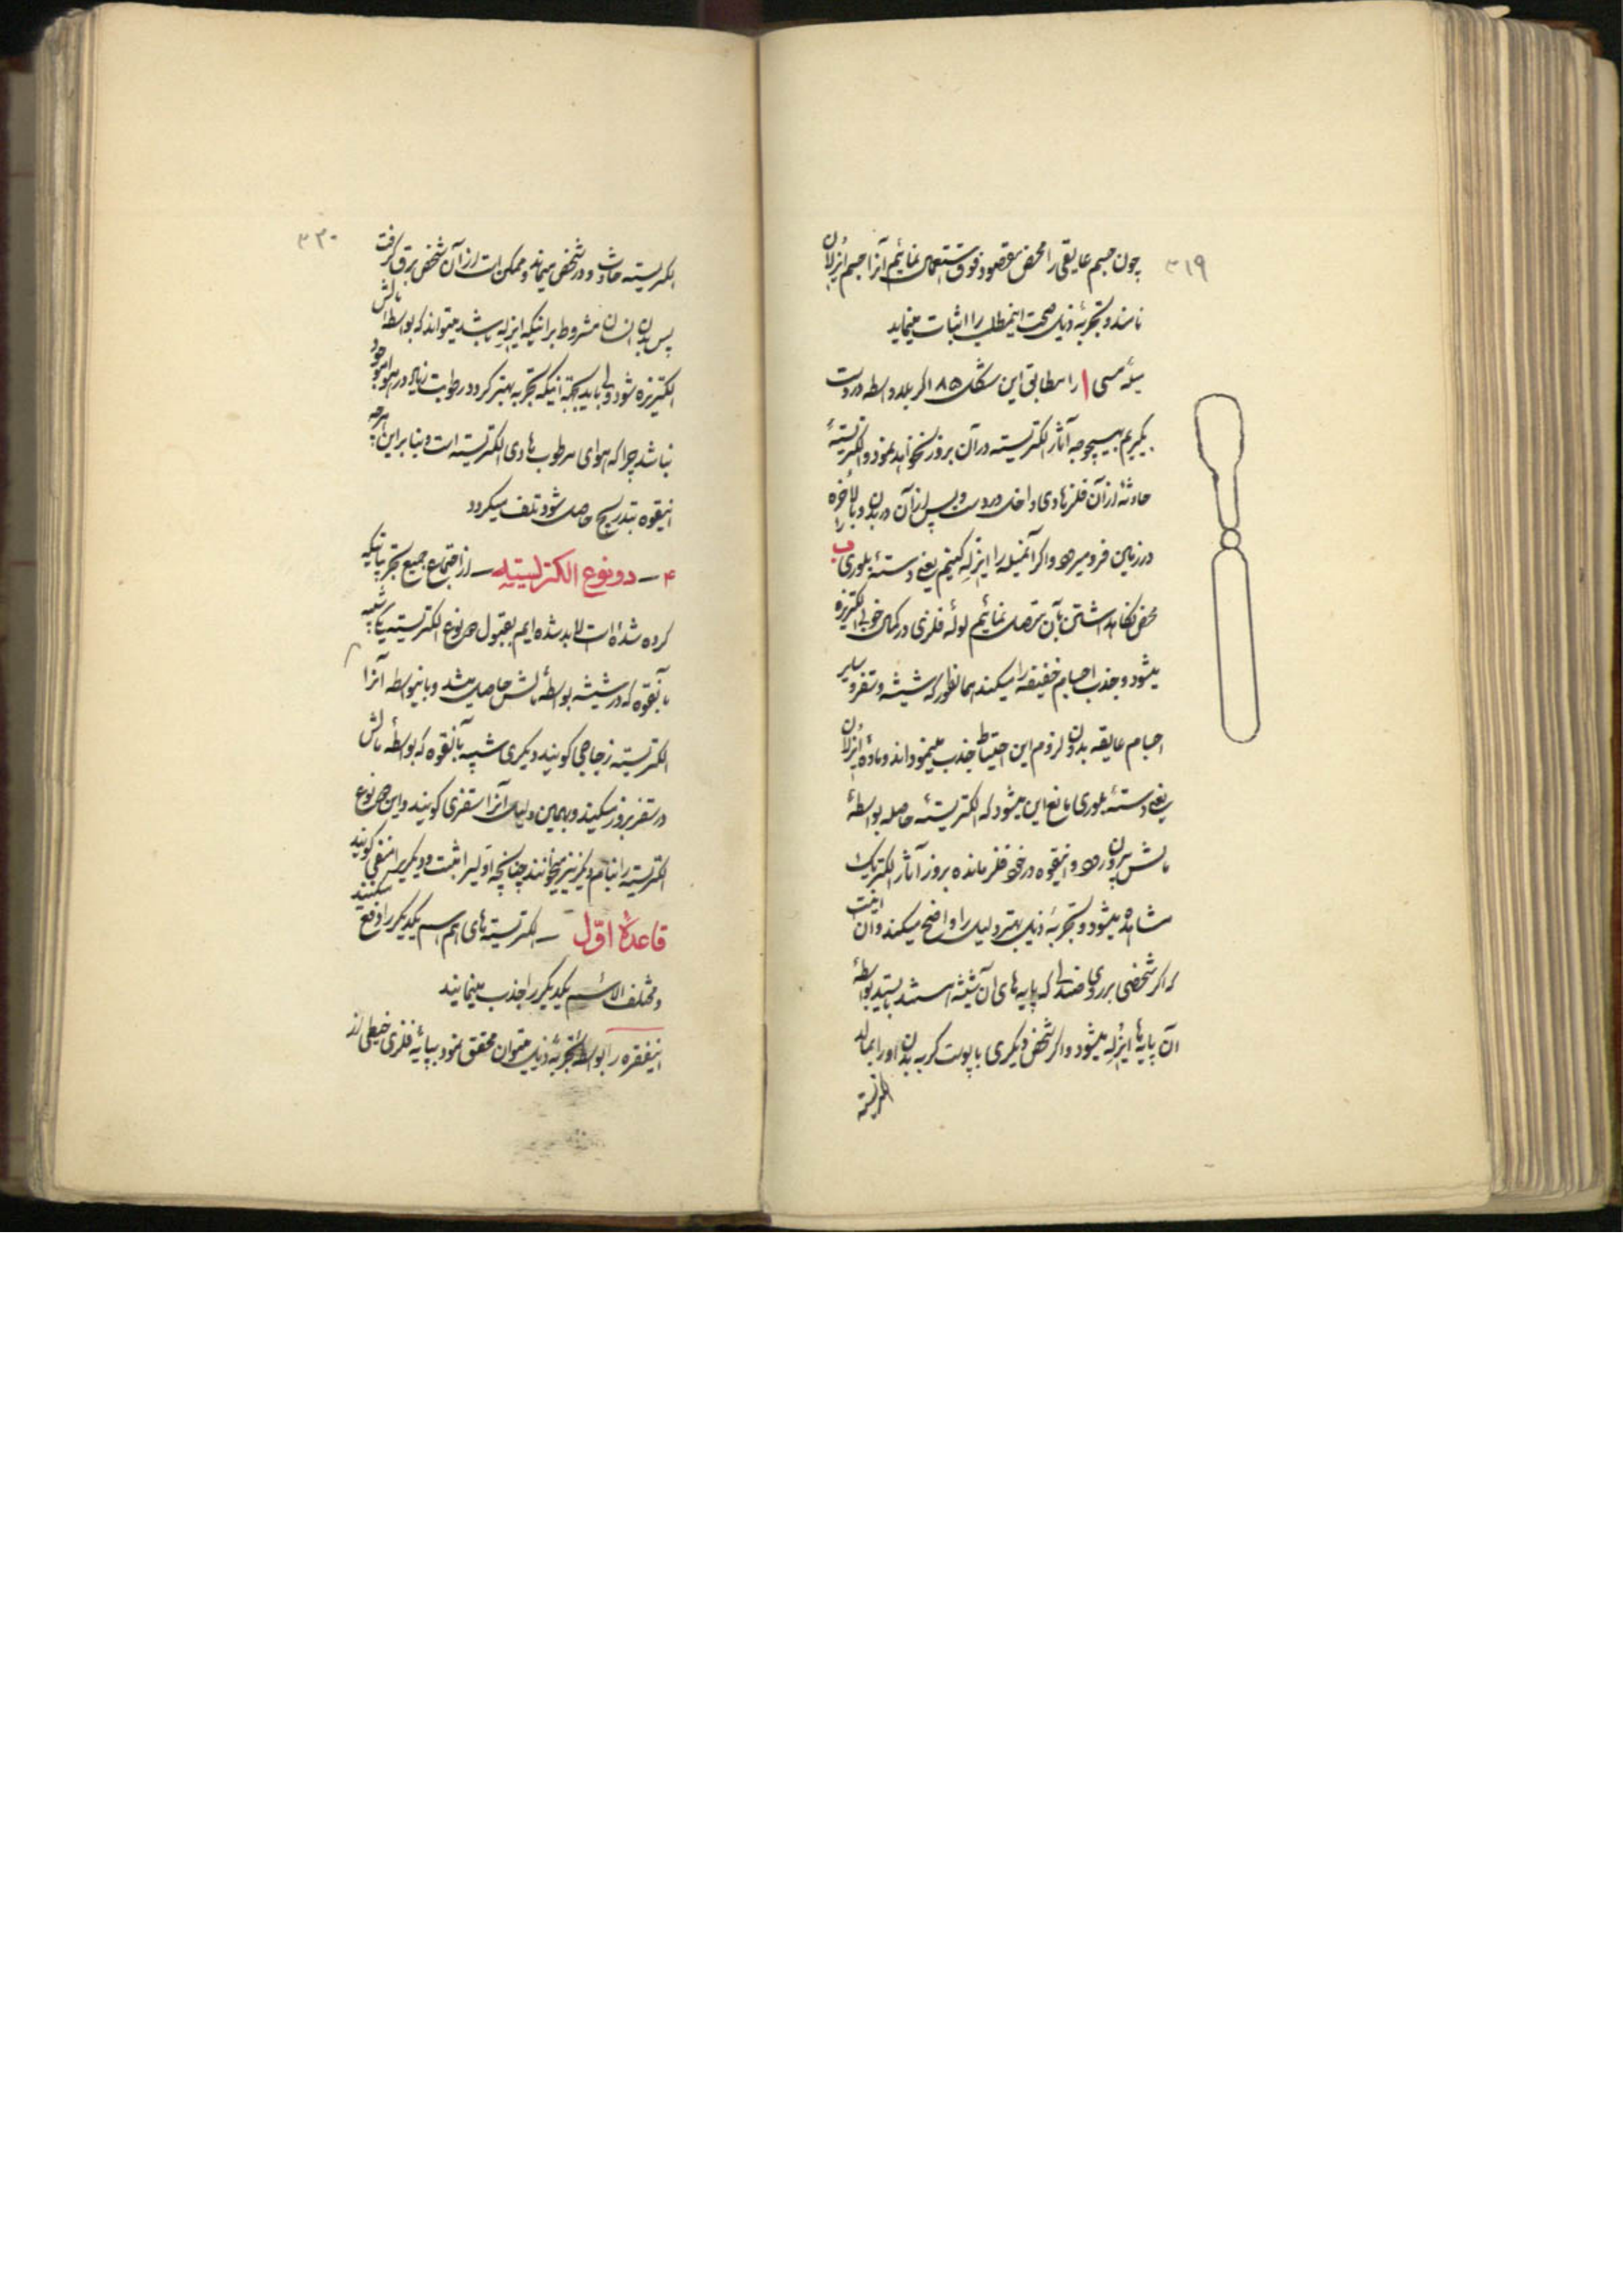 ۳۱۹
چون جسم عایقی را محض مقصود فوق استعمال نمائیم آنرا جسم ایزلان
نامند و تجربهٔ ذیل صحت اینمطلب را اثبات مینماید
میلهٔ مسی ا را مطابق این شکل ۸۵ اگر بلاواسطه در دست
بگیریم بهیچوجه آثار الکتریسته در آن بروز نخواهد نمود و الکتریستهٔ
حادثه از آن فلز هادی داخل در دست و پس از آن در بدن و بالأخره
در زمین فرو میرود و اگر آنمیله را ایزله کنیم یعنی دستهٔ بلوری ب را
محض نگاهداشتن بآن متصل نمائیم لولهٔ فلزی در کمال خوبی الکتریزه
میشود و جذب اجسام خفیفه را میکند همانطور که شیشه و سقز و سایر
اجسام عایقه بدون لزوم این احتیاط جذب مینموداند و مادهٔ ایزلان
یعنی دستهٔ بلوری مانع این میشود که الکتریستهٔ حاصله بواسطهٔ
مالش بیرون رود و اینقوه در خود فلز مانده بروز آثار الکتریک
مشاهده میشود و تجربهٔ ذیل بهتر دلیل را واضح میکند و آن اینست
که اگر شخصی بر روی صندلی که پایه های آن شیشه است بایستد بواسطهٔ
آن پایه‌ها ایزله میشود و اگر شخص دیگری با پوست گربه بدن او را بمالد
الکتریسته
۳۲۰
الکتریسته حادث و در شخص میماند و ممکن است از آن شخص برق گرفت
پس بدن انسان مشروط بر اینکه ایزله باشد میتواند که بواسطهٔ مالش
الکتریزه شود ولی باید بجهة اینکه تجربه بهتر گردد رطوبت زیاد در هوا موجود
نباشد چرا که هوای مرطوب هادی الکتریسته است و بنابراین هر چه
اینقوه بتدریج حاصل شود تلف میگردد
۴ — دو نوع الکتریسیته — از اجتماع جمیع تجربیاتیکه
کرده شده است لابد شده ایم بقبول دو نوع الکتریسته یکی شبیه
بآنقوه که در شیشه بواسطهٔ مالش حاصل میشد و باینواسطه آنرا
الکتریستهٔ زجاجی گویند و دیگری شبیه بآنقوه که بواسطهٔ مالش
در سقز بروز میکند و بهمین دلیل آنرا سقزی گویند و این دو نوع
الکتریسته را بنام دیگر نیز میخوانند چنانچه اولیرا مثبت و دیگریرا منفی گویند
قاعدهٔ اوّل — الکتریسته های هم اسم یکدیگر را دفع میکنند
و مختلف الاسم یکدیگر را جذب مینمایند
اینفقره را بواسطهٔ تجربهٔ ذیل میتوان محقق نمود بپایهٔ فلزی خیطی از